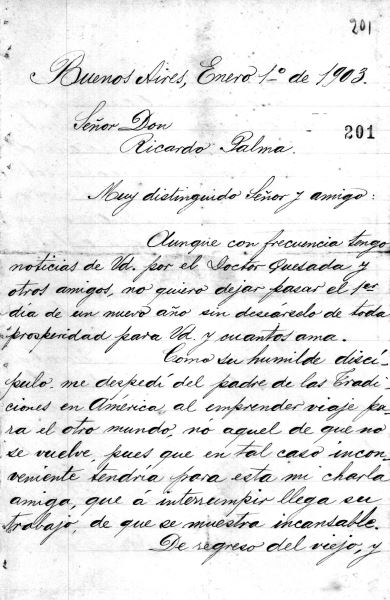 201
Buenos Aires, Enero 1º de 1903.
Señor Don
201
Ricardo Palma.
Muy distinguido Señor y amigo:
Aunque con frecuencia tengo
noticias de Vd. por el Doctor Quesada y
otros amigos, no quiero dejar pasar el 1er
dia de un nuevo año sin desearselo de toda
prosperidad para Vd. y cuantos ama.
Como su humilde discí-
pulo me despedi del padre de las Tradi-
ciones en América, al emprender viaje pa-
ra el otro mundo, nó aquel de que no
se vuelve, pues que en tal caso incon-
veniente tendría para esta mi charla
amiga, que á interrumpir llega su
trabajo, de que se muestra incansable.
De regreso del viejo, y